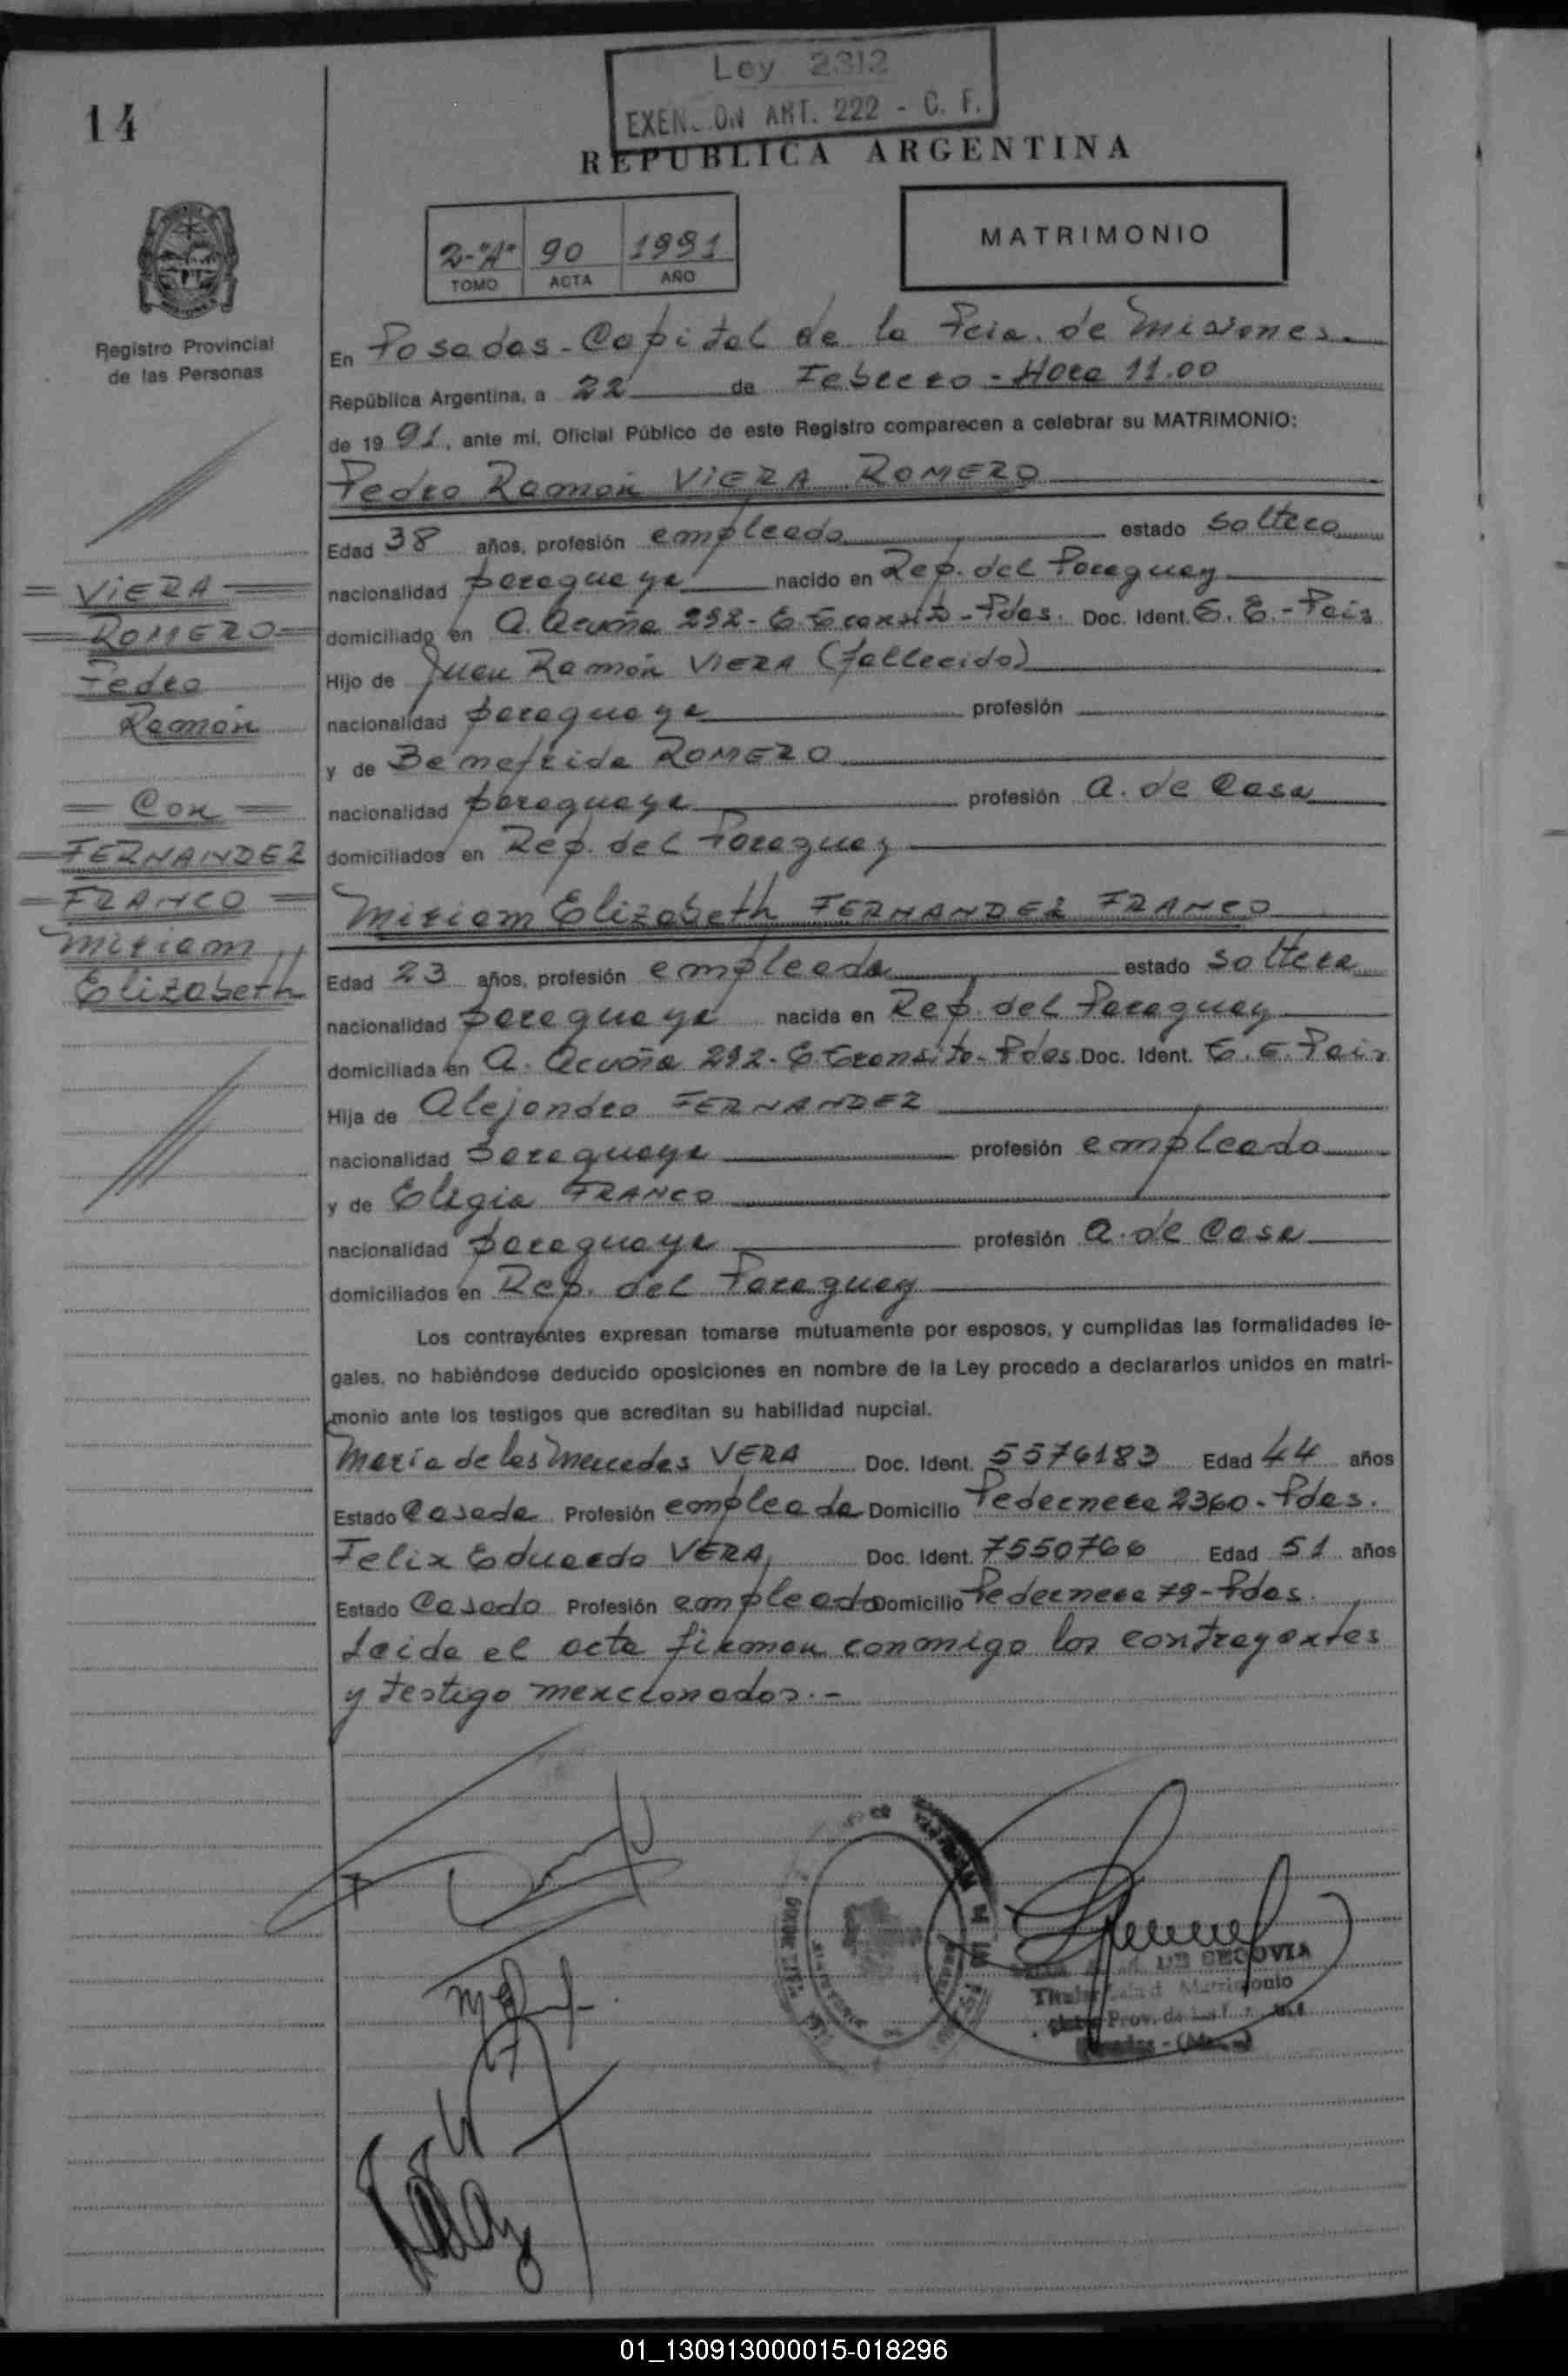 Ley 2312
ART. 222 - C. F.
14
REPUBLICA ARGENTINA
2-"A" 90 1991
TOMO ACTA AÑO
MATRIMONIO
Registro Provincial
de las Personas
En Posadas - Capital de la Pcia. de Misiones
República Argentina, a 22 de Febrero - Hora 11.00
de 1991, ante mi, Oficial Público de este Registro comparecen a celebrar su MATRIMONIO:
Pedro Ramón VIERA ROMERO
Edad 38 años, profesión empleado estado soltero
nacionalidad paraguaya nacido en Rep. del Paraguay
domiciliado en A. Acuña 292 - E. Transito - Pdas. Doc. Ident. E. E. - País
Hijo de Juan Ramón VIERA (fallecido)
nacionalidad paraguaya profesión
y de Benefrida ROMERO
nacionalidad paraguaya profesión A. de Casa
domiciliados en Rep. del Paraguay
= VIERA =
= ROMERO =
Pedro
Ramón
= Con =
= FERNANDEZ
= FRANCO =
Miriam
Elizabeth
Miriam Elizabeth FERNANDEZ FRANCO
Edad 23 años, profesión empleada estado soltera
nacionalidad paraguaya nacida en Rep. del Paraguay
domiciliada en A. Acuña 292 - E. Transito - Pdas. Doc. Ident. E. E. País
Hija de Alejandro FERNANDEZ
nacionalidad paraguaya profesión empleado
y de Eligia FRANCO
nacionalidad paraguaya profesión A. de Casa
domiciliados en Rep. del Paraguay
Los contrayentes expresan tomarse mutuamente por esposos, y cumplidas las formalidades le-
gales, no habiéndose deducido oposiciones en nombre de la Ley procedo a declararlos unidos en matri-
monio ante los testigos que acreditan su habilidad nupcial.
María de las Mercedes VERA Doc. Ident. 5576183 Edad 44 años
Estado Casada Profesión empleada Domicilio Pedernera 2360 - Pdas.
Felix Eduardo VERA Doc. Ident. 7550766 Edad 51 años
Estado Casado Profesión empleado Domicilio Pedernera 79 - Pdas.
Leida el acta firman conmigo los contrayentes
y testigo mencionados. -
DE SEGOVIA
Titular Matrimonio
Prov. de las
01_130913000015-018296